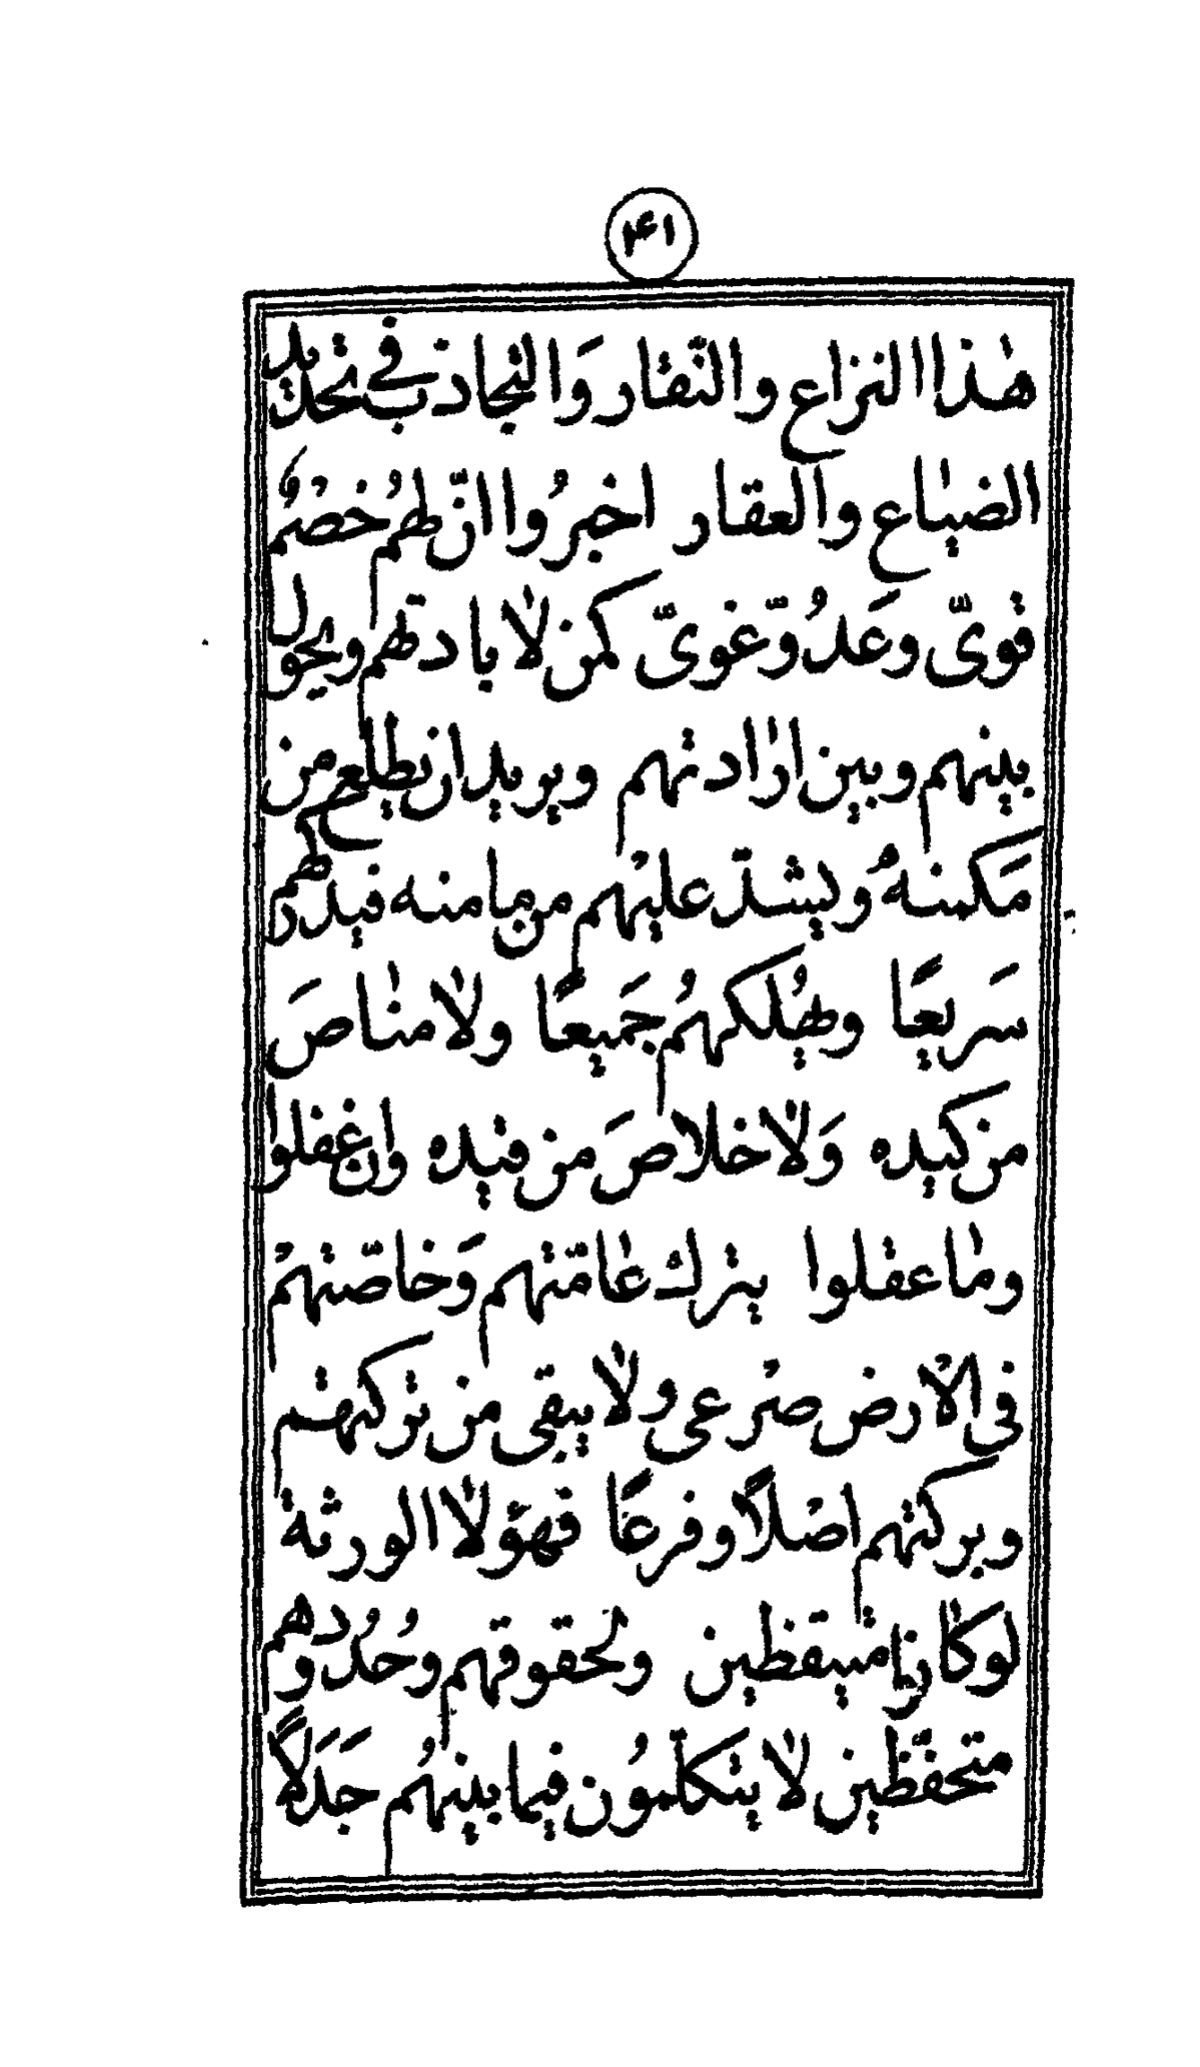 ۴۱
هٰذا النزاع والنّقار وَالتجاذب في تحديد
الضيٰاع والعقار اخبرُوا انّ لهمُ خصْمٌ
قوىّ وعَدُوّ غوىّ كمن لاٰبادتهم ويحول
بينهم وبين ارٰادتهم ويريد ان يطلع من
مَكمنهُ ويشدّ عليْهم من مامنه فيدركهم
سَريعًا ويهُلكهمُ جَميعًا ولاٰ منٰاصَ
من كيده وَلاٰ خلاٰصَ من قيده وان غفلوا
ومٰا عقلوا يترك عٰامّتهم وَخاصّتهمْ
فى الاْرض صرْعى ولاٰ يبقى من تركتهم
وبركتهم اصْلاً وفرعًا فهؤلاٰ الورثة
لوكٰانوا متيقظين ولحقوقهم وحُدُودهم
متحفّظين لاٰ يتكلّمُون فيما بينهُم جَدَلاً